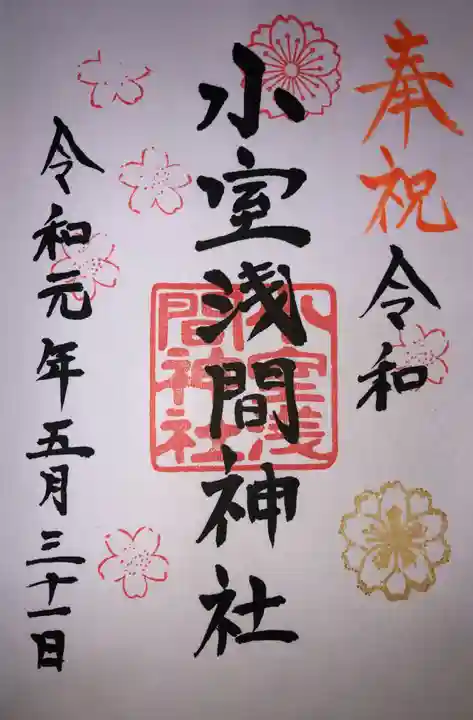 奉祝 令和
小室浅間神社
小室浅間神社
令和元年五月三十一日